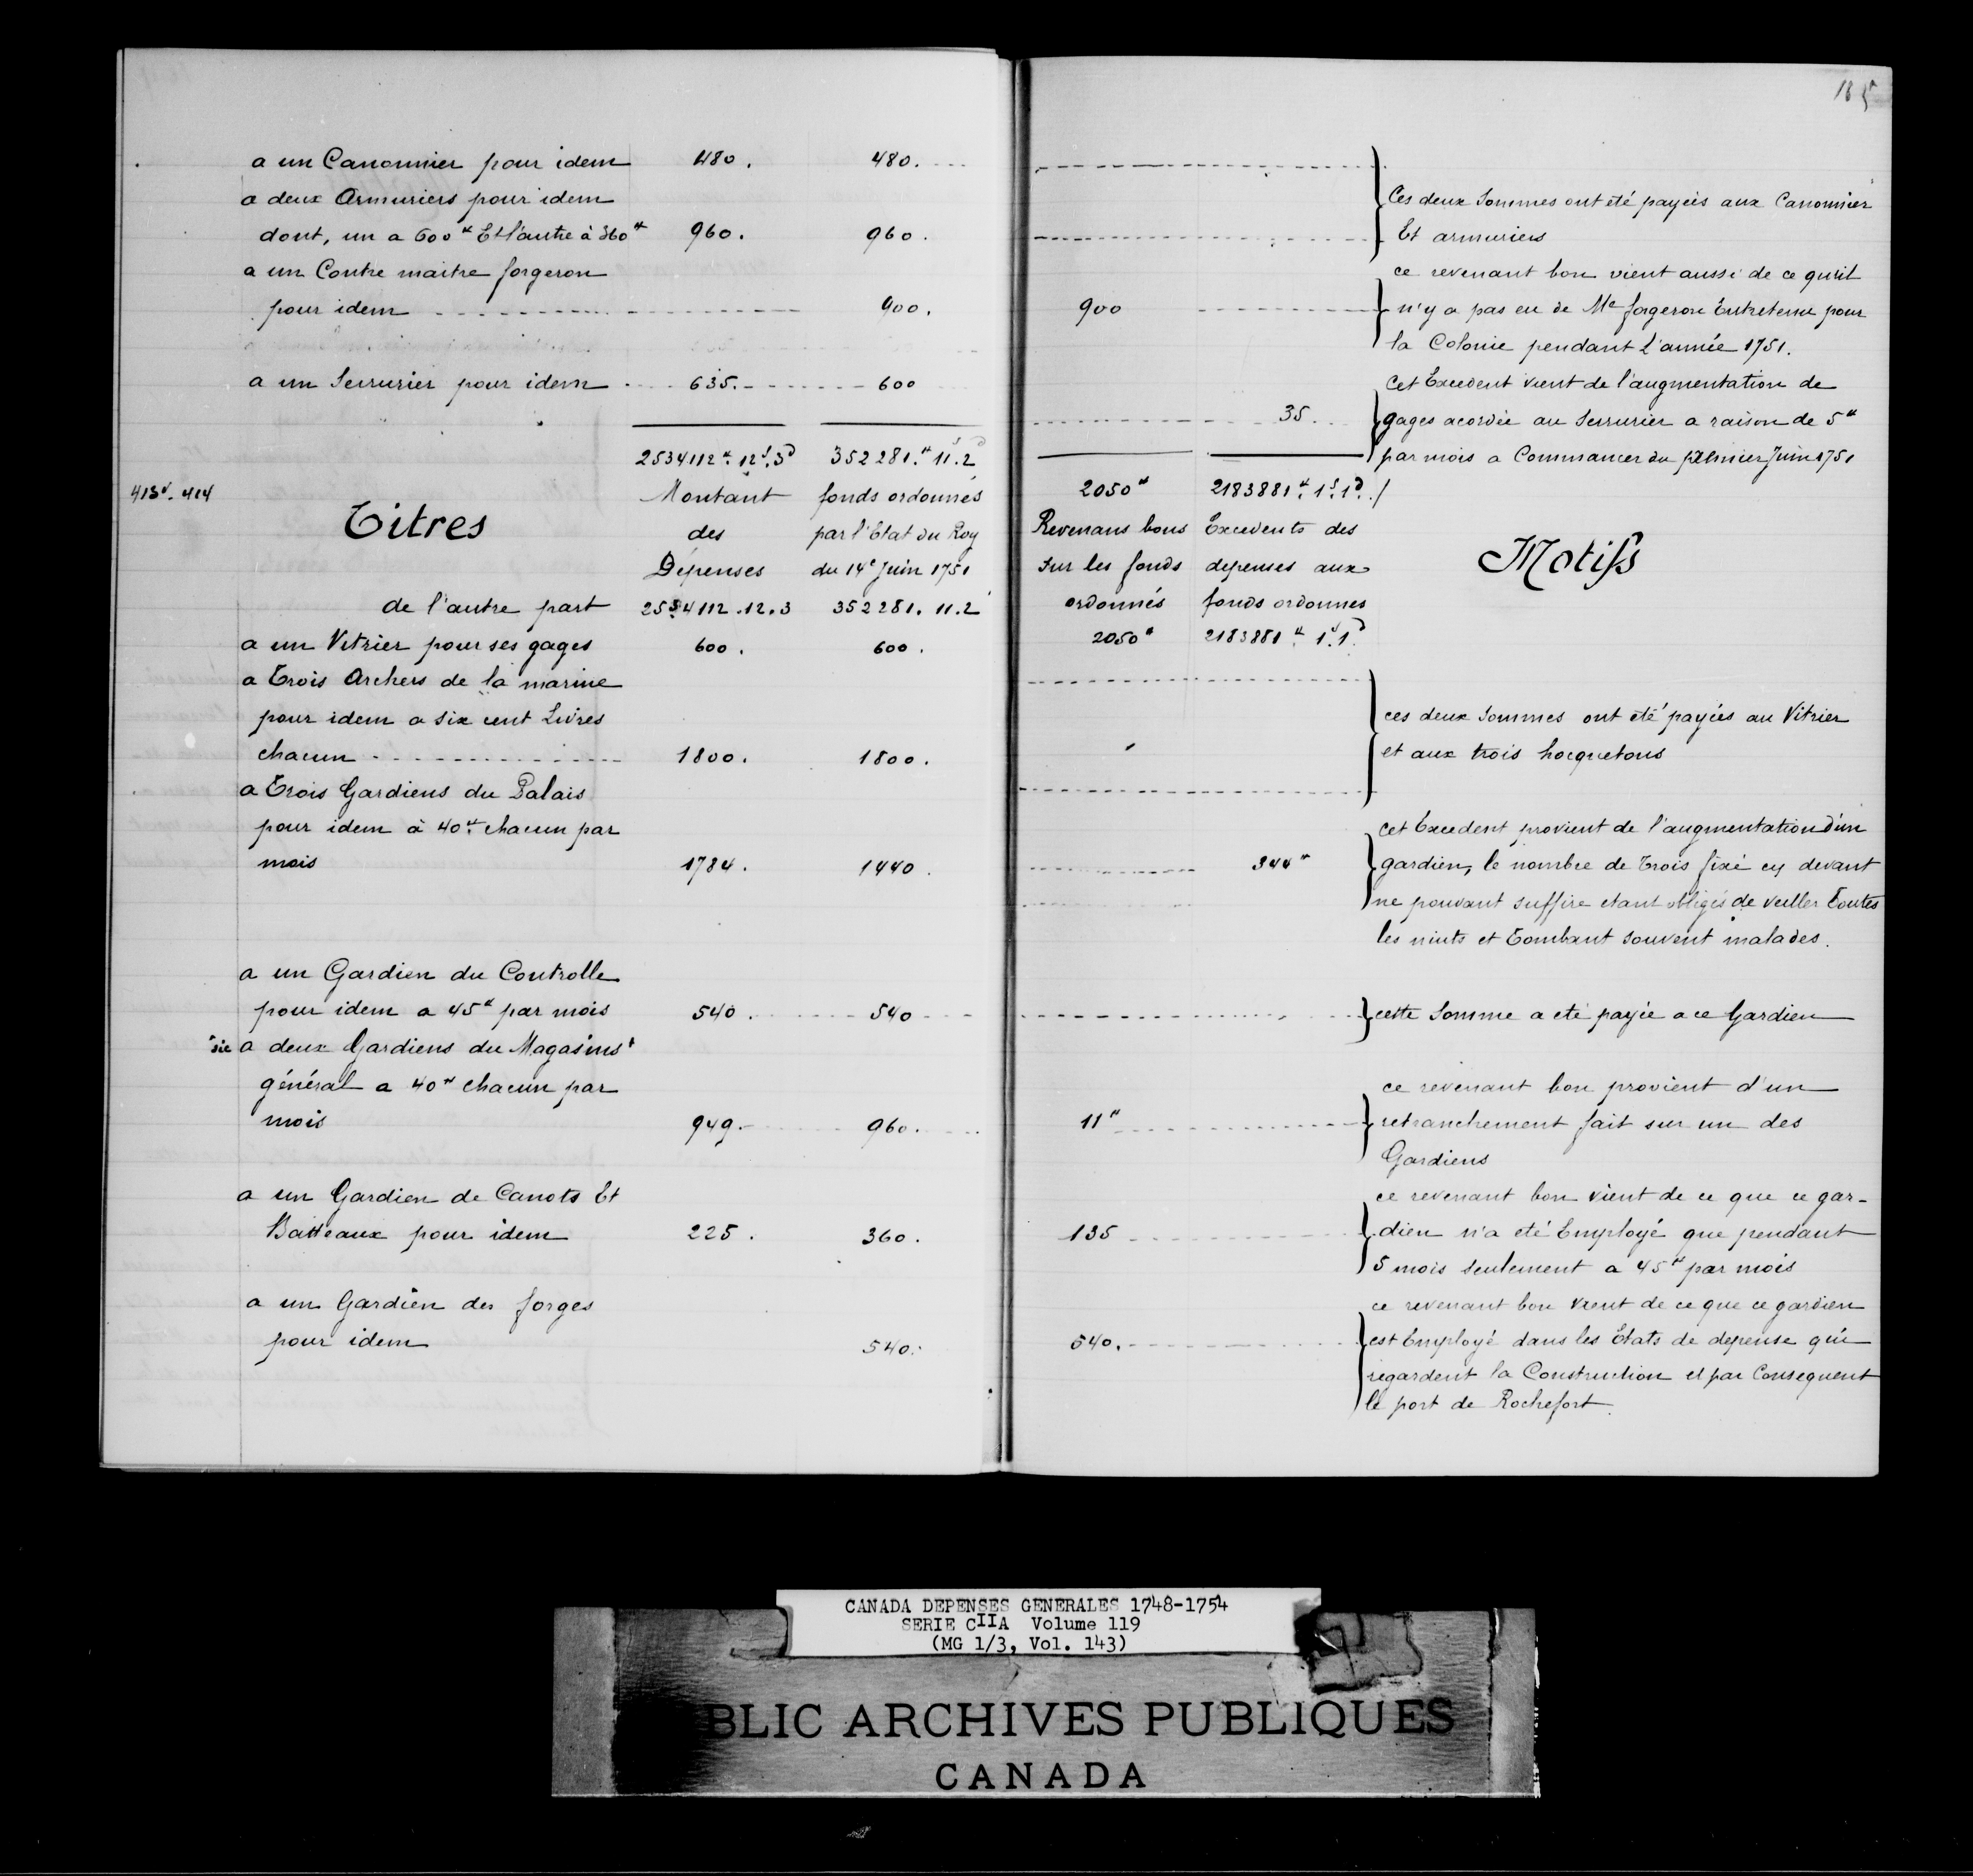 185
a un Canonnier pour idem 480. 480.
a deux Armuriers pour idem
dont, un a 600# Et l'autre à 360# 960. 960.
a un Contre maitre forgeron
pour idem 900.
a un Serrurier pour idem 635. 600
2534112#. 12s. 3d 352281.# 11s. 2d
413v. 414
Titres
Montant
des
Dépenses
fonds ordonnés
par l'Etat du Roy
du 14e Juin 1751
de l'autre part 2534112. 12. 3 352281. 11. 2
a un Vitrier pour ses gages 600. 600.
a Trois Archers de la marine
pour idem a six cent Livres
chacun 1800. 1800.
a Trois Gardiens du Palais
pour idem à 40# chacun par
mois 1784. 1440.
a un Gardien du Controlle
pour idem a 45# par mois 540. 540
sic a deux Gardiens du Magasins
général a 40# chacun par
mois 949. 960.
a un Gardien de Canots Et
Batteaux pour idem 225. 360.
a un Gardien des forges
pour idem 540.
Ces deux Sommes ont été payées aux Canonnier
Et armuriers
ce revenant bon vient aussi de ce qu'il
900 n'y a pas eu de Me forgeron Entretenu pour
la Colonie pendant l'année 1751.
Cet Excedent vient de l'augmentation de
35 gages acordée au Serrurier a raison de 5#
par mois a Commancer du premier Juin 1751
2050# 2183881#. 1s. 1d./
Revenans bons
sur les fonds
ordonnés
Excedents des
depenses aux
fonds ordonnes
Motifs
2050# 2183881#. 1s. 1d.
ces deux Sommes ont été payées au Vitrier
et aux trois hocquetons
cet Excedent provient de l'augmentation d'un
344# gardien, le nombre de Trois fixé cy devant
ne pouvant suffire etant obligés de veiller Toutes
les niuts et Tombant souvent malades.
cette Somme a eté payée a ce Gardien
ce revenant bon provient d'un
11# retranchement fait sur un des
Gardiens
ce revenant bon vient de ce que ce gar-
135 dien n'a eté Employé que pendant
5 mois seulement a 45# par mois
ce revenant bon vient de ce que ce gardien
540. est Employé dans les Etats de depense qui
regardent la Construction et par Consequent
le port de Rochefort.
CANADA DEPENSES GENERALES 1748-1754
SERIE CIIA Volume 119
(MG 1/3, Vol. 143)
BLIC ARCHIVES PUBLIQUES
CANADA